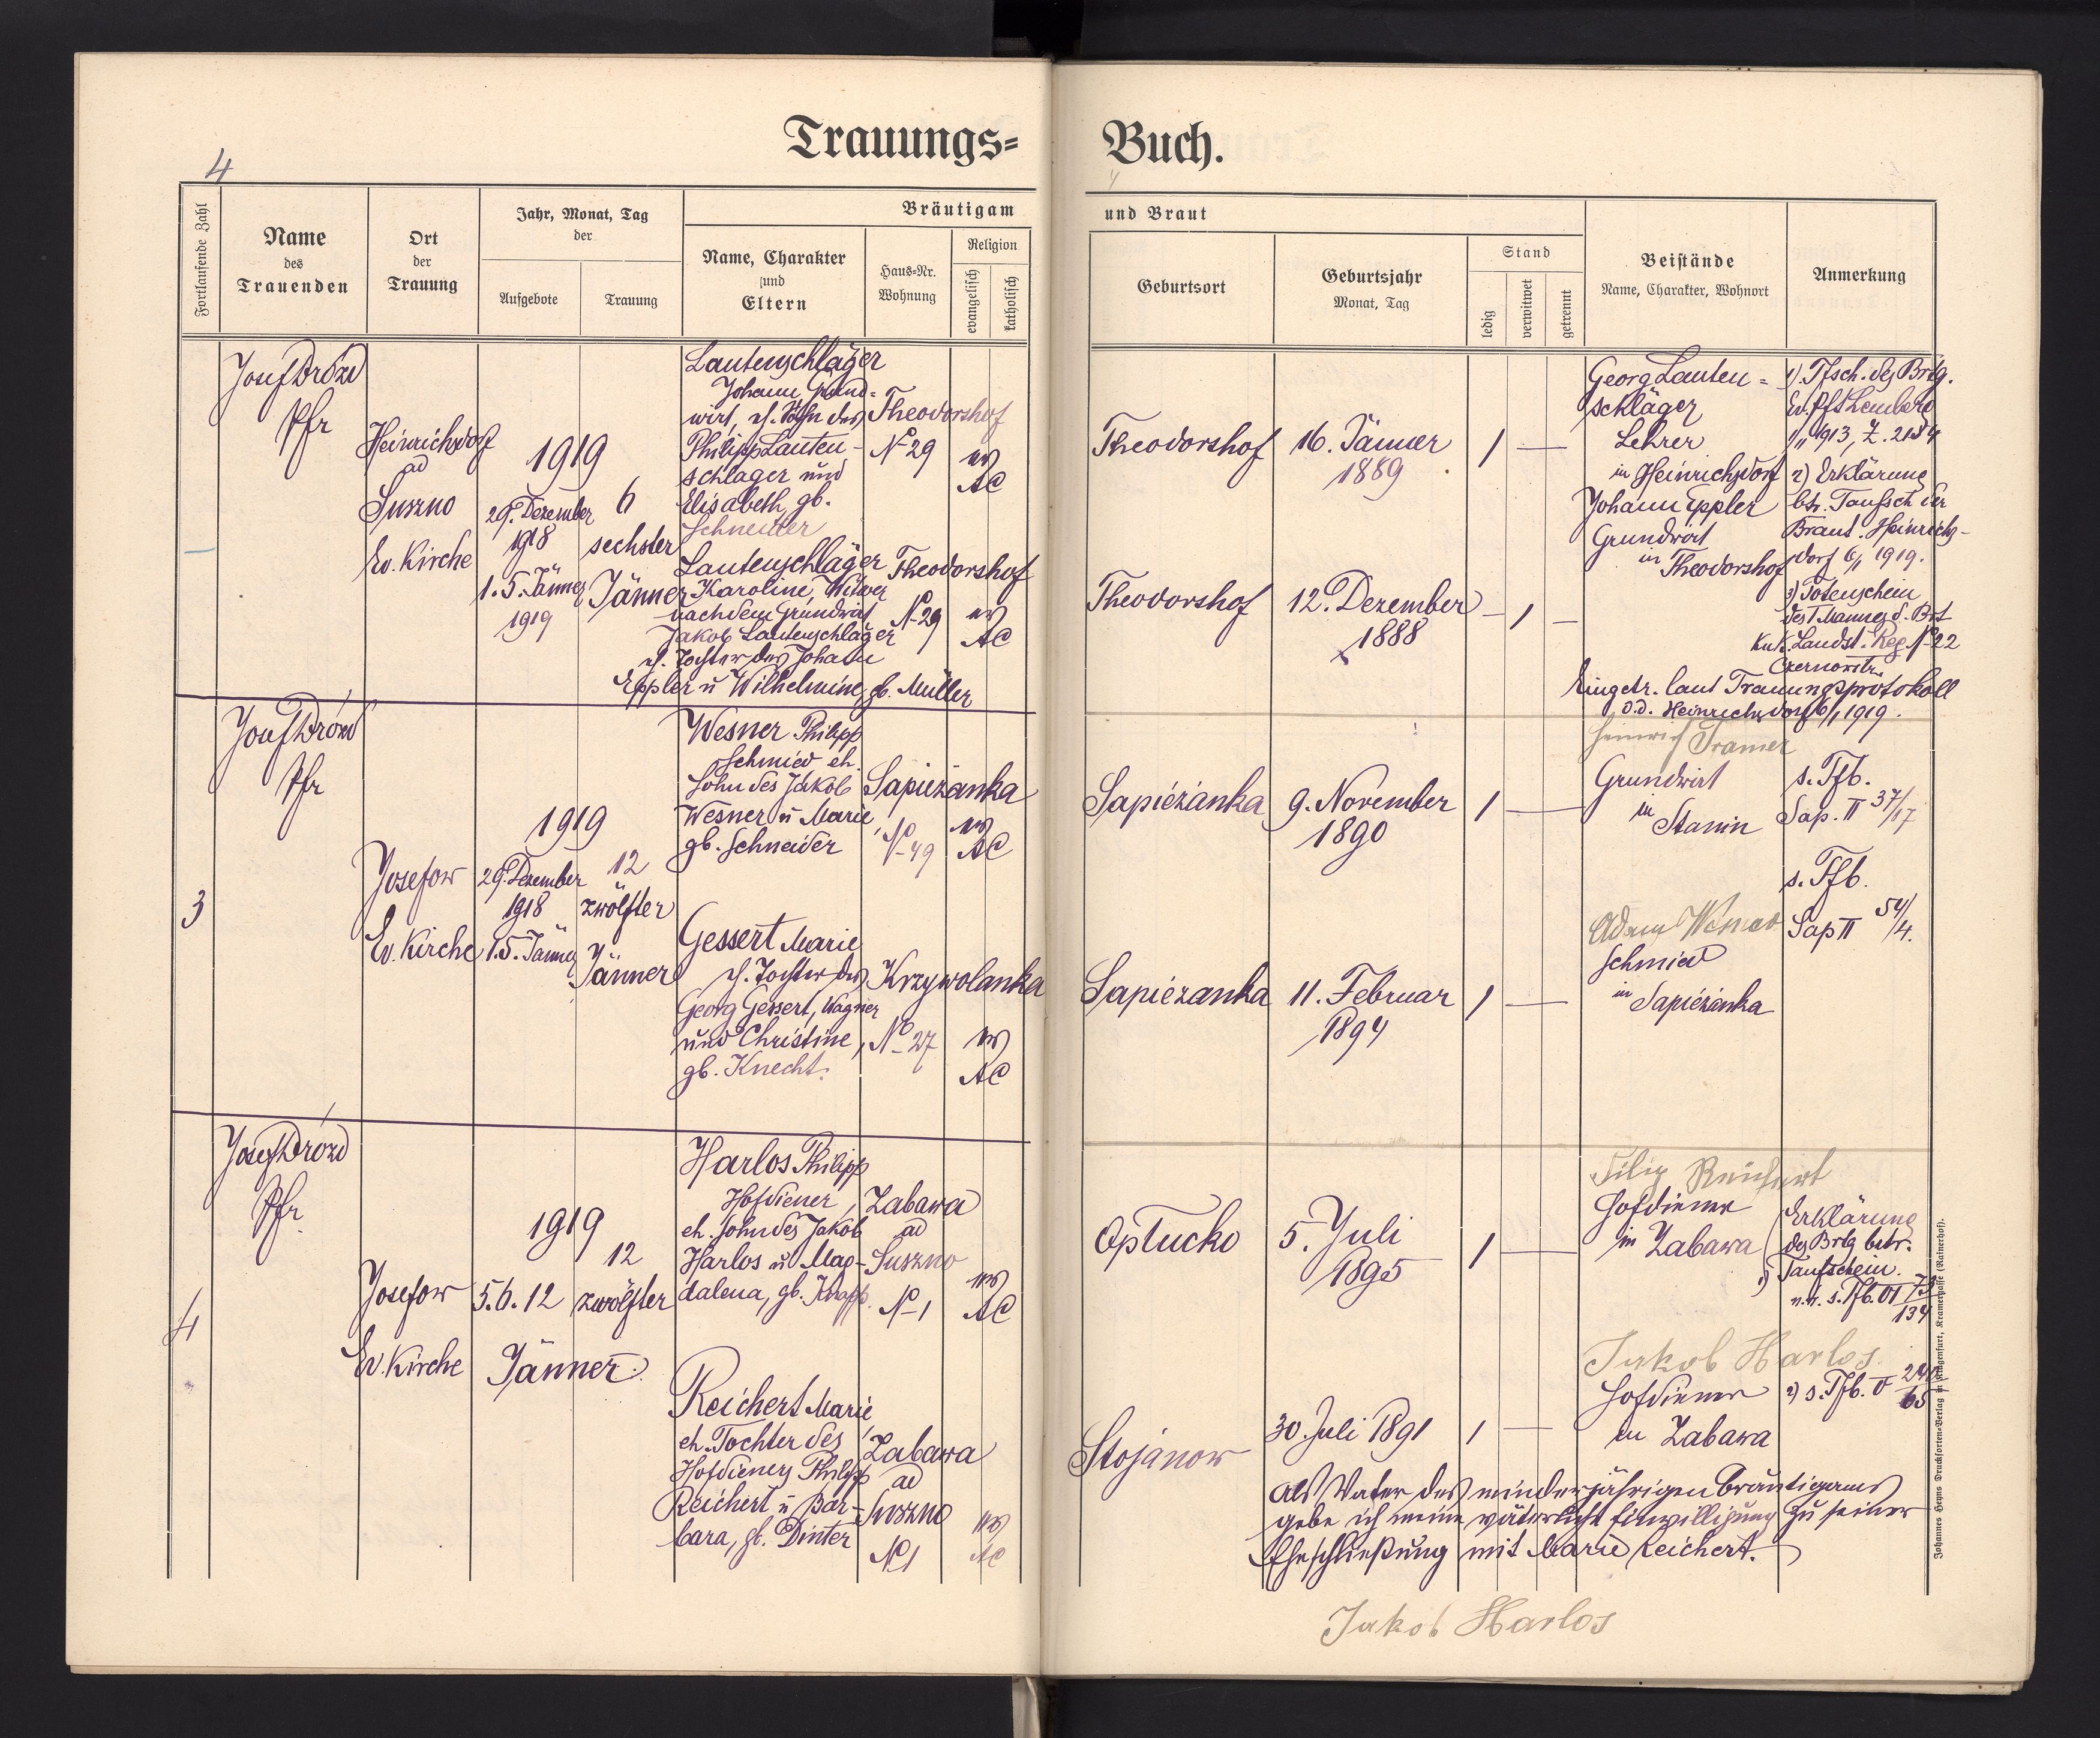 4
Trauungs=
Fortlaufende Zahl
Name
des
Trauenden
Ort
der
Trauung
Jahr, Monat, Tag
der
Aufgebote
Trauung
Bräutigam
Name, Charakter
und
Eltern
Haus=Nr.
Wohnung
Religion
evangelisch
katholisch
Josef Drozd
Pfr
Heinrichsdorf
ad
Suszno
Ev. Kirche
1919
29. Dezember
1918
1. 5. Jänner
1919
6
sechster
Jänner
Lautenschläger
Johann Grund=
wirt, eh. Sohn des
Philipp Lauten-
schläger und
Elisabeth, gb.
Schneider
Theodorshof
No 29
ev
AC
Lautenschläger
Karoline, Witwe
nach dem Grundwirt
Jakob Lautenschläger
eh. Tochter des Johann
Eppler u Wilhelmine, gb. Müller
Theodorshof
No 29
ev
AC
3
Josef Drozd
Pfr
Josefow
Ev. Kirche
1919
29. Dezember
1918
1. 5. Jänner
12
zwölfter
Jänner
Wesner Philipp
Schmied eh.
Sohn des Jakob
Wesner u Marie,
gb. Schneider
Sapieżanka
No 49
ev
AC
Gessert Marie
eh. Tochter des
Georg Gessert, Wagner
und Christine,
gb. Knecht.
Krzywolanka
No 27
ev
AC
4
Josef Drozd
Pfr.
Josefow
Ev. Kirche
1919
5. 6. 12
Jänner.
12
zwölfter
Harlos Philipp
Hofdiener,
eh. Sohn des Jakob
Harlos u Mag-
dalena, gb. Knapp.
Zabawa
ad
Suszno
No 1
ev
AC
Reichert Marie,
eh. Tochter des
Hofdieners Philipp
Reichert u Bar-
bara, gb. Dinter
Zabawa
ad
Suszno
No 1
ev
AC
Buch.
4
und Braut
Geburtsort
Geburtsjahr
Monat, Tag
Stand
ledig
verwitwet
getrennt
Beistände
Name, Charakter, Wohnort
Anmerkung
Theodorshof
16. Jänner
1889
1
Georg Lauten=
schläger
Lehrer
in Heinrichsdorf
Johann Eppler
Grundwirt
in Theodorshof
1) Tfsch. des Brtg.
Ev. Pft Lemberg
1/11 1913, Z. 2154
2) Erklärung
btr. Taufsch der
Braut. Heinrichs-
dorf 6/1 1919.
3) Totenschein
des Mannes d. Brt
K u K. Landst. Reg No 22
Theodorshof
12. Dezember
1888
1
Eingetr. laut Trauungsprotokoll
d.d. Heinrichsdorf 6/1 1919.
Sapieżanka
9. November
1890
1
Heinrich Tramer
Grundwirt
in Stanin
s. Tfb.
Sap. II 37/17
Sapieżanka
11. Februar
1894
1
Adam
Schmied
in Sapieżanka
s. Tfb.
Sap II 54/4.
Opłucko
5. Juli
1895
1
Filip Reichert
Hofdiener
in Zabawa
Erklärung
des Brtg betr.
1) Taufschein.
Stojanow
30. Juli 1891
1
Jakob Harlos.
Hofdiener
in Zabawa
2) s. Tfb. V
Als Vater des minderjährigen Bräutigams
gebe ich meine väterliche Einwilligung zu seiner
Eheschließung mit Marie Reichert.
Jakob Harlos
Johannes Heyns Drucksorten=Verlag in Klagenfurt, Kramergasse (Rainerhof).